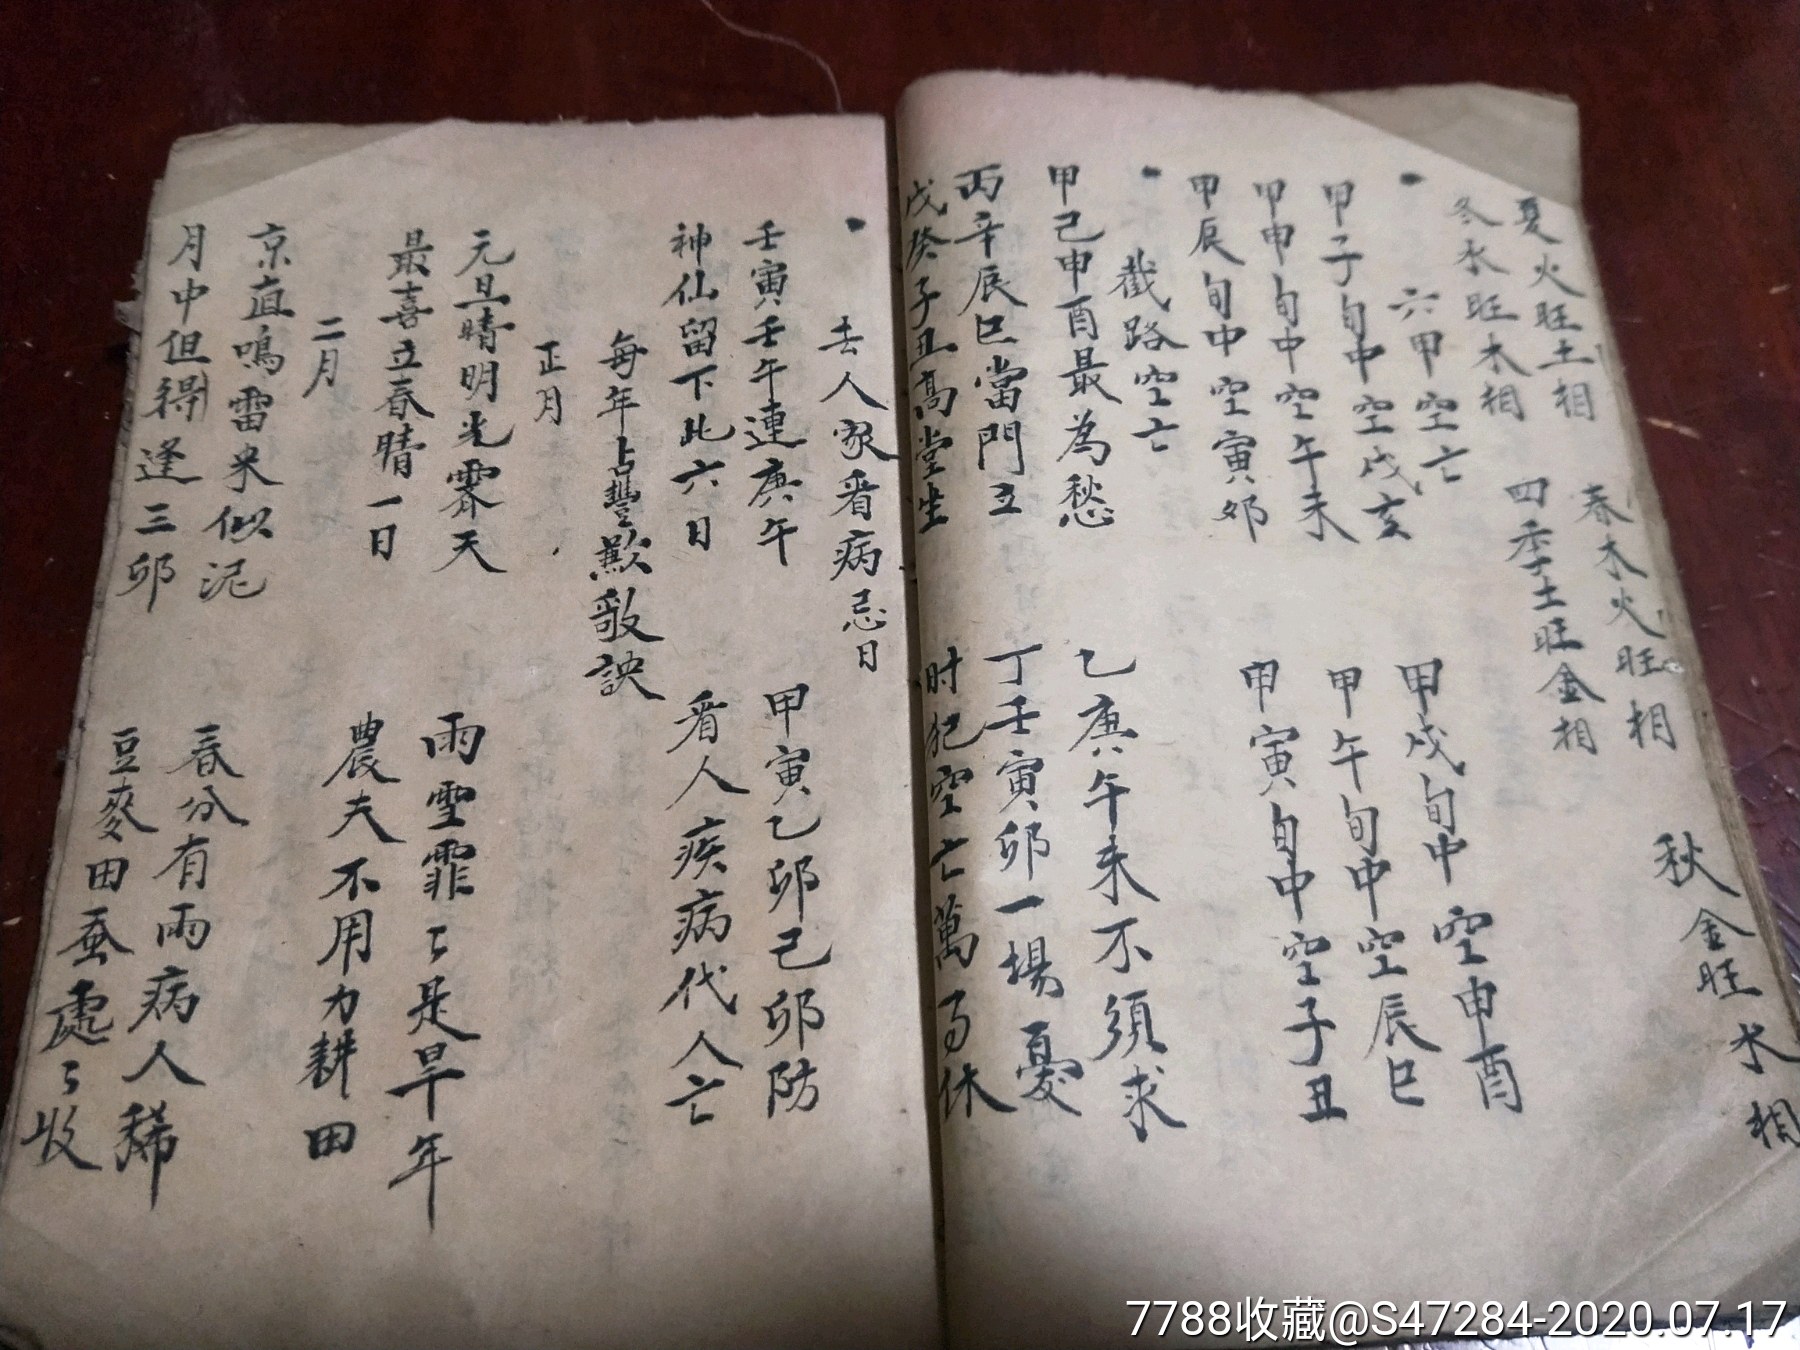 夏火旺土相　春木火旺相　秋金旺水相
冬水旺木相　四季土旺金相
六甲空亡
甲子旬中空戌亥　甲戌旬中空申酉
甲申旬中空午未　甲午旬中空辰巳
甲辰旬中空寅卯　甲寅旬中空子丑
截路空亡
甲己申酉最為愁　乙庚午未不須求
丙辛辰巳當門立　丁壬寅卯一場憂
戊癸子丑高堂坐　时犯空亡萬事休
去人家看病忌日
壬寅壬午連庚午　甲寅乙卯己卯防
神仙留下此六日　看人疾病代人亡
每年占豐歉歌訣
正月
元旦晴明光霽天　雨雪霏々是旱年
最喜立春晴一日　農夫不用力耕田
二月
京直鳴雷米似泥　春分有雨病人稀
月中但得逢三卯　豆麥田蚕處々收
7788收藏@S47284-2020.07.17